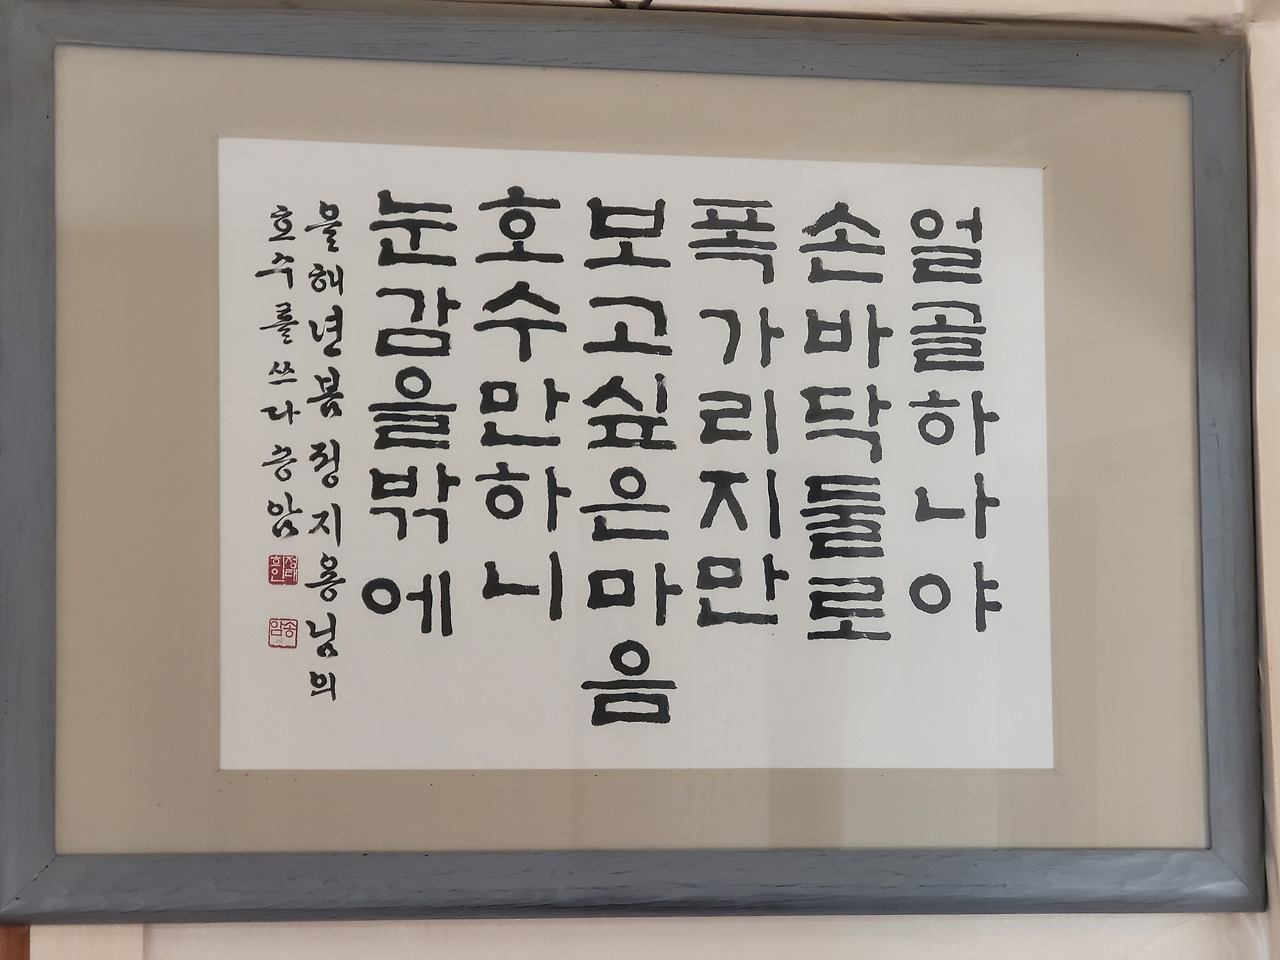 얼골하나야
손바닥둘로
폭가리지만
보고싶은마음
호수만하니
눈감을밖에
을해년봄정지용님의
호수를쓰다송암
정태희인
송암